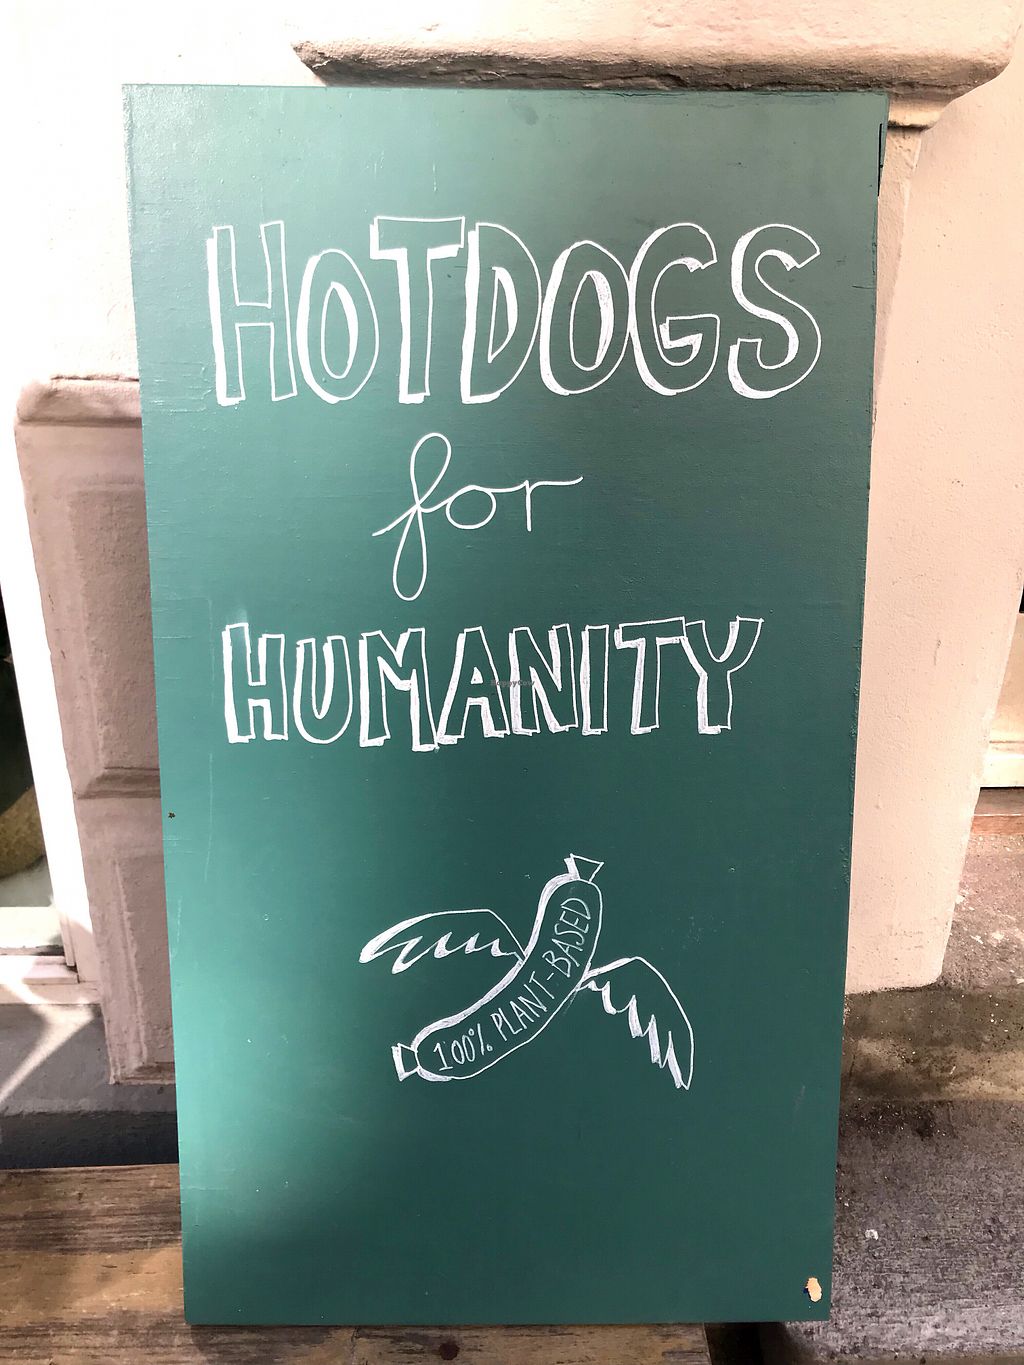 HOTDOGS
for
HUMANITY
HappyCow
100% PLANT-BASED